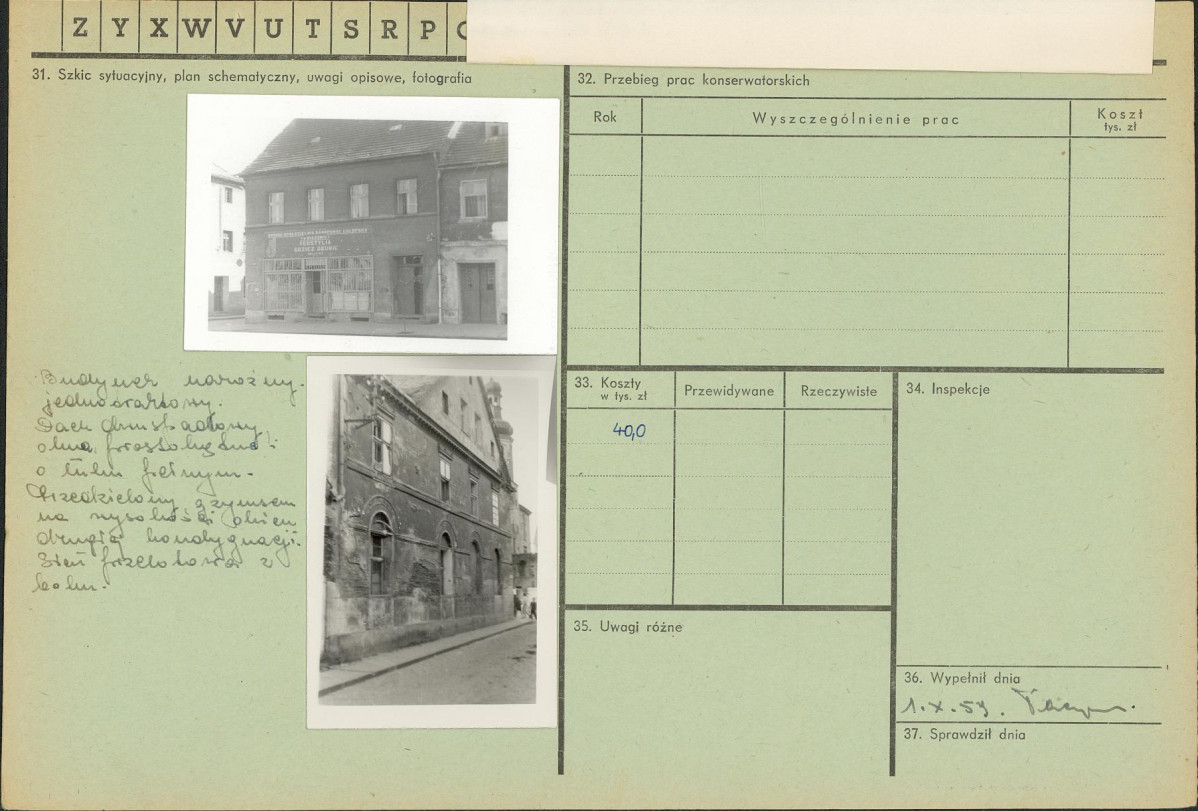 Z Y X W V U T S R P
31. Szkic sytuacyjny, plan schematyczny, uwagi opisowe, fotografia
Budynek narożny.
jednotraktowy.
Dach dwuspadowy
okna prostokątne i
o łuku pełnym.
Przedzielony gzymsem
na wysokości okien
drugiej kondygnacji.
Sień przelotowa z
boku.
32. Przebieg prac konserwatorskich
Rok
Wyszczególnienie prac
Koszt
tys. zł
33. Koszty
w tys. zł
Przewidywane
Rzeczywiste
40,0
34. Inspekcje
35. Uwagi różne
36. Wypełnił dnia
1.X.59.
37. Sprawdził dnia